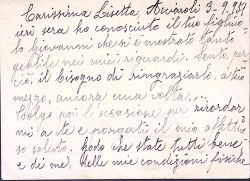 Carissima Lisetta, Acciaroli 3-9-951
ieri sera ho conosciuto il tuo figliuo-
lo Giovanni che si è mostrato tanto
gentile nei miei riguardi. Sento, per-
ciò, il bisogno di ringraziarlo, a tuo
mezzo, ancora una volta.
Colgo poi l'occasione per ricordar-
mi a te e porgerti il mio affettuo-
so saluto. Godo che state tutti bene,
e di me, delle mie condizioni fisiche